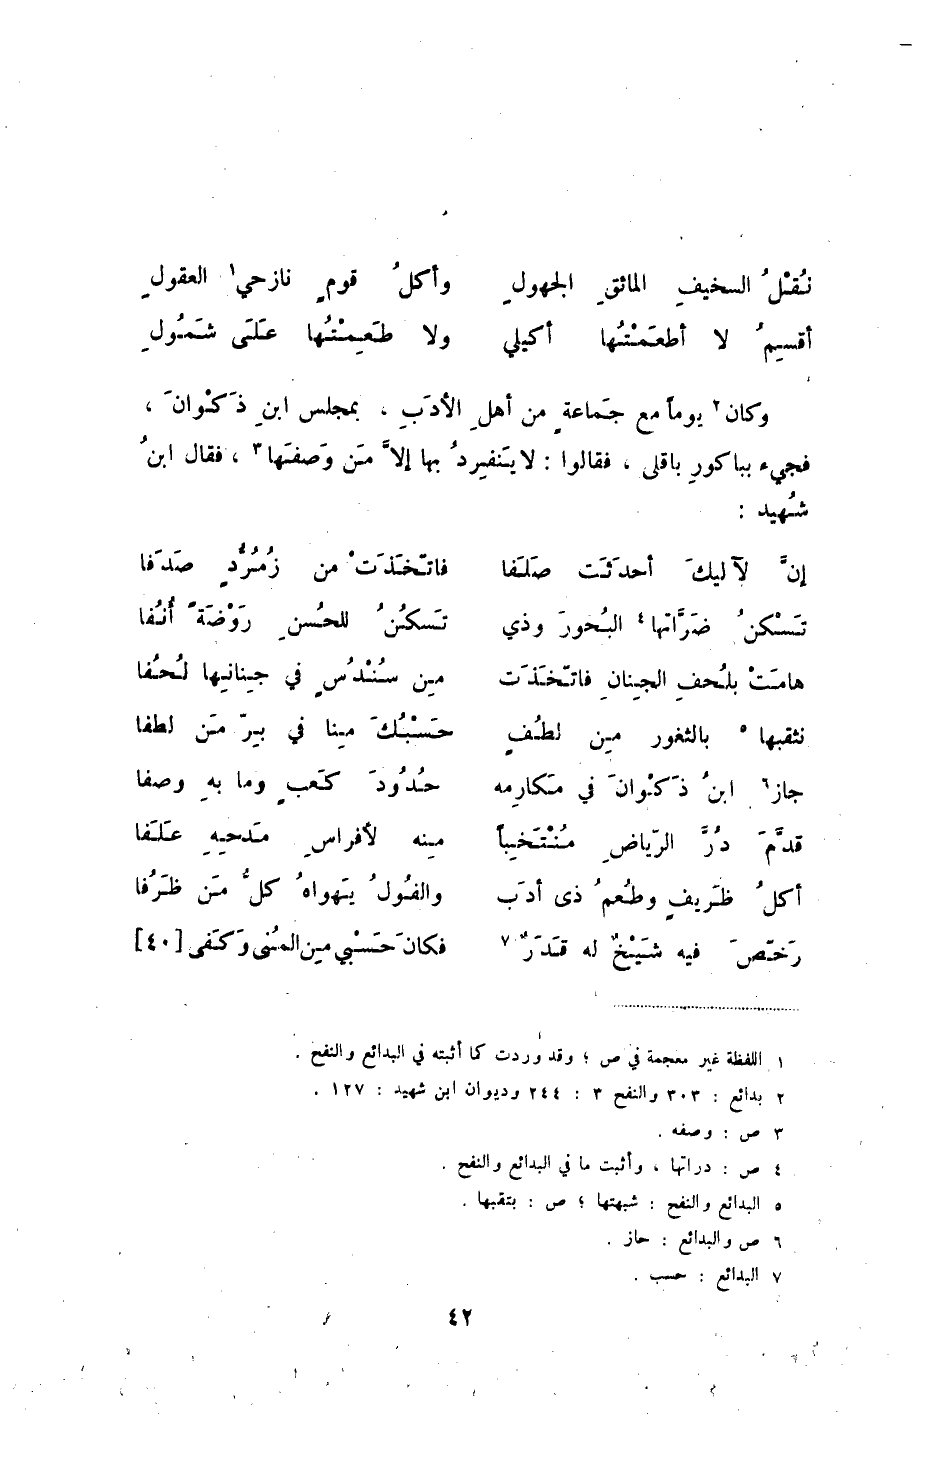 نُقْلُ السخيفِ المائقِ الجهولِ وأكلُ قومٍ نازحي١ العقولِ
أقسِمُ لا أطعَمْتُها أكيلي ولا طَعِمْتُها عَلَى شَمُولِ
وكان٢ يوماً مع جَماعةٍ من أهلِ الأدَبِ ، بمجلس ابنِ ذَكْوانَ ،
فجيء بباكورِ باقلى ، فقالوا : لا يَنفرِدُ بها إلاَّ مَن وَصفَها٣ ، فقال ابنُ
شُهيد :
إنَّ لآليكَ أحدَثَت صَلَفا فاتّخَذَتْ من زُمُرُّدٍ صَدَفا
تَسْكنُ ضَرَّاتها٤ البُحورَ وذي تَسكنُ للحُسنِ رَوْضَةً أُنُفا
هامَتْ بلُحفِ الجِنانِ فاتّخَذَت مِن سُنْدُسٍ في جِنانِها لُحُفا
نثقبها٥ بالثغور مِن لطُفٍ حَسْبُكَ مِنا في بِرّ مَن لطفا
جاز٦ ابنُ ذَكْوانَ في مَكارِمه حُدُودَ كَعبٍ وما بهِ وصفا
قدَّمَ دُرَّ الرّياضِ مُنْتَخِباً مِنه لأفراسِ مَدحِهِ عَلَفا
أكلُ ظَريفٍ وطُعمُ ذى أدَب والفُولُ يَهواهُ كلُّ مَن ظَرُفا
رَخّصَ فيه شَيْخٌ له قَدَرٌ٧ فكانَ حَسْبي مِن المُنى وَكَفى [٤٠]
١ اللفظة غير معجمة في ص ؛ وقد وردت كما أثبته في البدائع والنفح .
٢ بدائع : ٣٠٣ والنفح ٣ : ٢٤٤ وديوان ابن شهيد : ١٢٧ .
٣ ص : وصفه .
٤ ص : دراتها ، وأثبت ما في البدائع والنفح .
٥ البدائع والنفح : شبهتها ؛ ص : بتقبها .
٦ ص والبدائع : حاز .
٧ البدائع : حسب .
٤٢